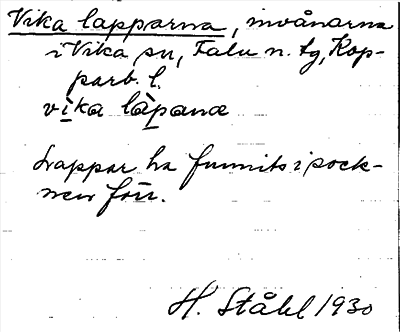 Vika lapparna, invånarna
i Vika sn, Falu n. tg, Kop-
parb. l.
vi̲ka làp̲anæ
Lappar ha funnits i sock-
nen förr.
H. Ståhl 1930